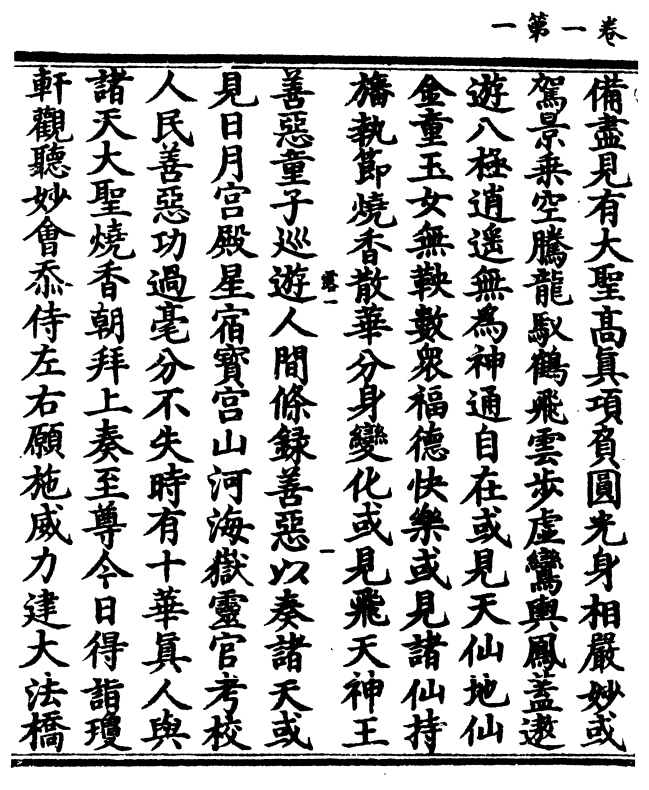 卷一第一
備盡見有大聖髙真項負圓光身相嚴妙或
駕景乗空騰龍馭鶴飛雲步虛鸞輿鳳蓋遨
遊八極逍遥無爲神通自在或見天仙地仙
金童玉女無鞅數衆福德快樂或見諸仙持
旛執節燒香散華分身變化或見飛天神王
善惡童子巡遊人間條録善惡以奏諸天或
見日月宫殿星宿寳宫山河海嶽靈官考校
人民善惡功過毫分不失時有十華真人與
諸天大聖燒香朝拜上奏至尊今日得詣瓊
軒觀聽妙會忝侍左右願施威力建大法橋